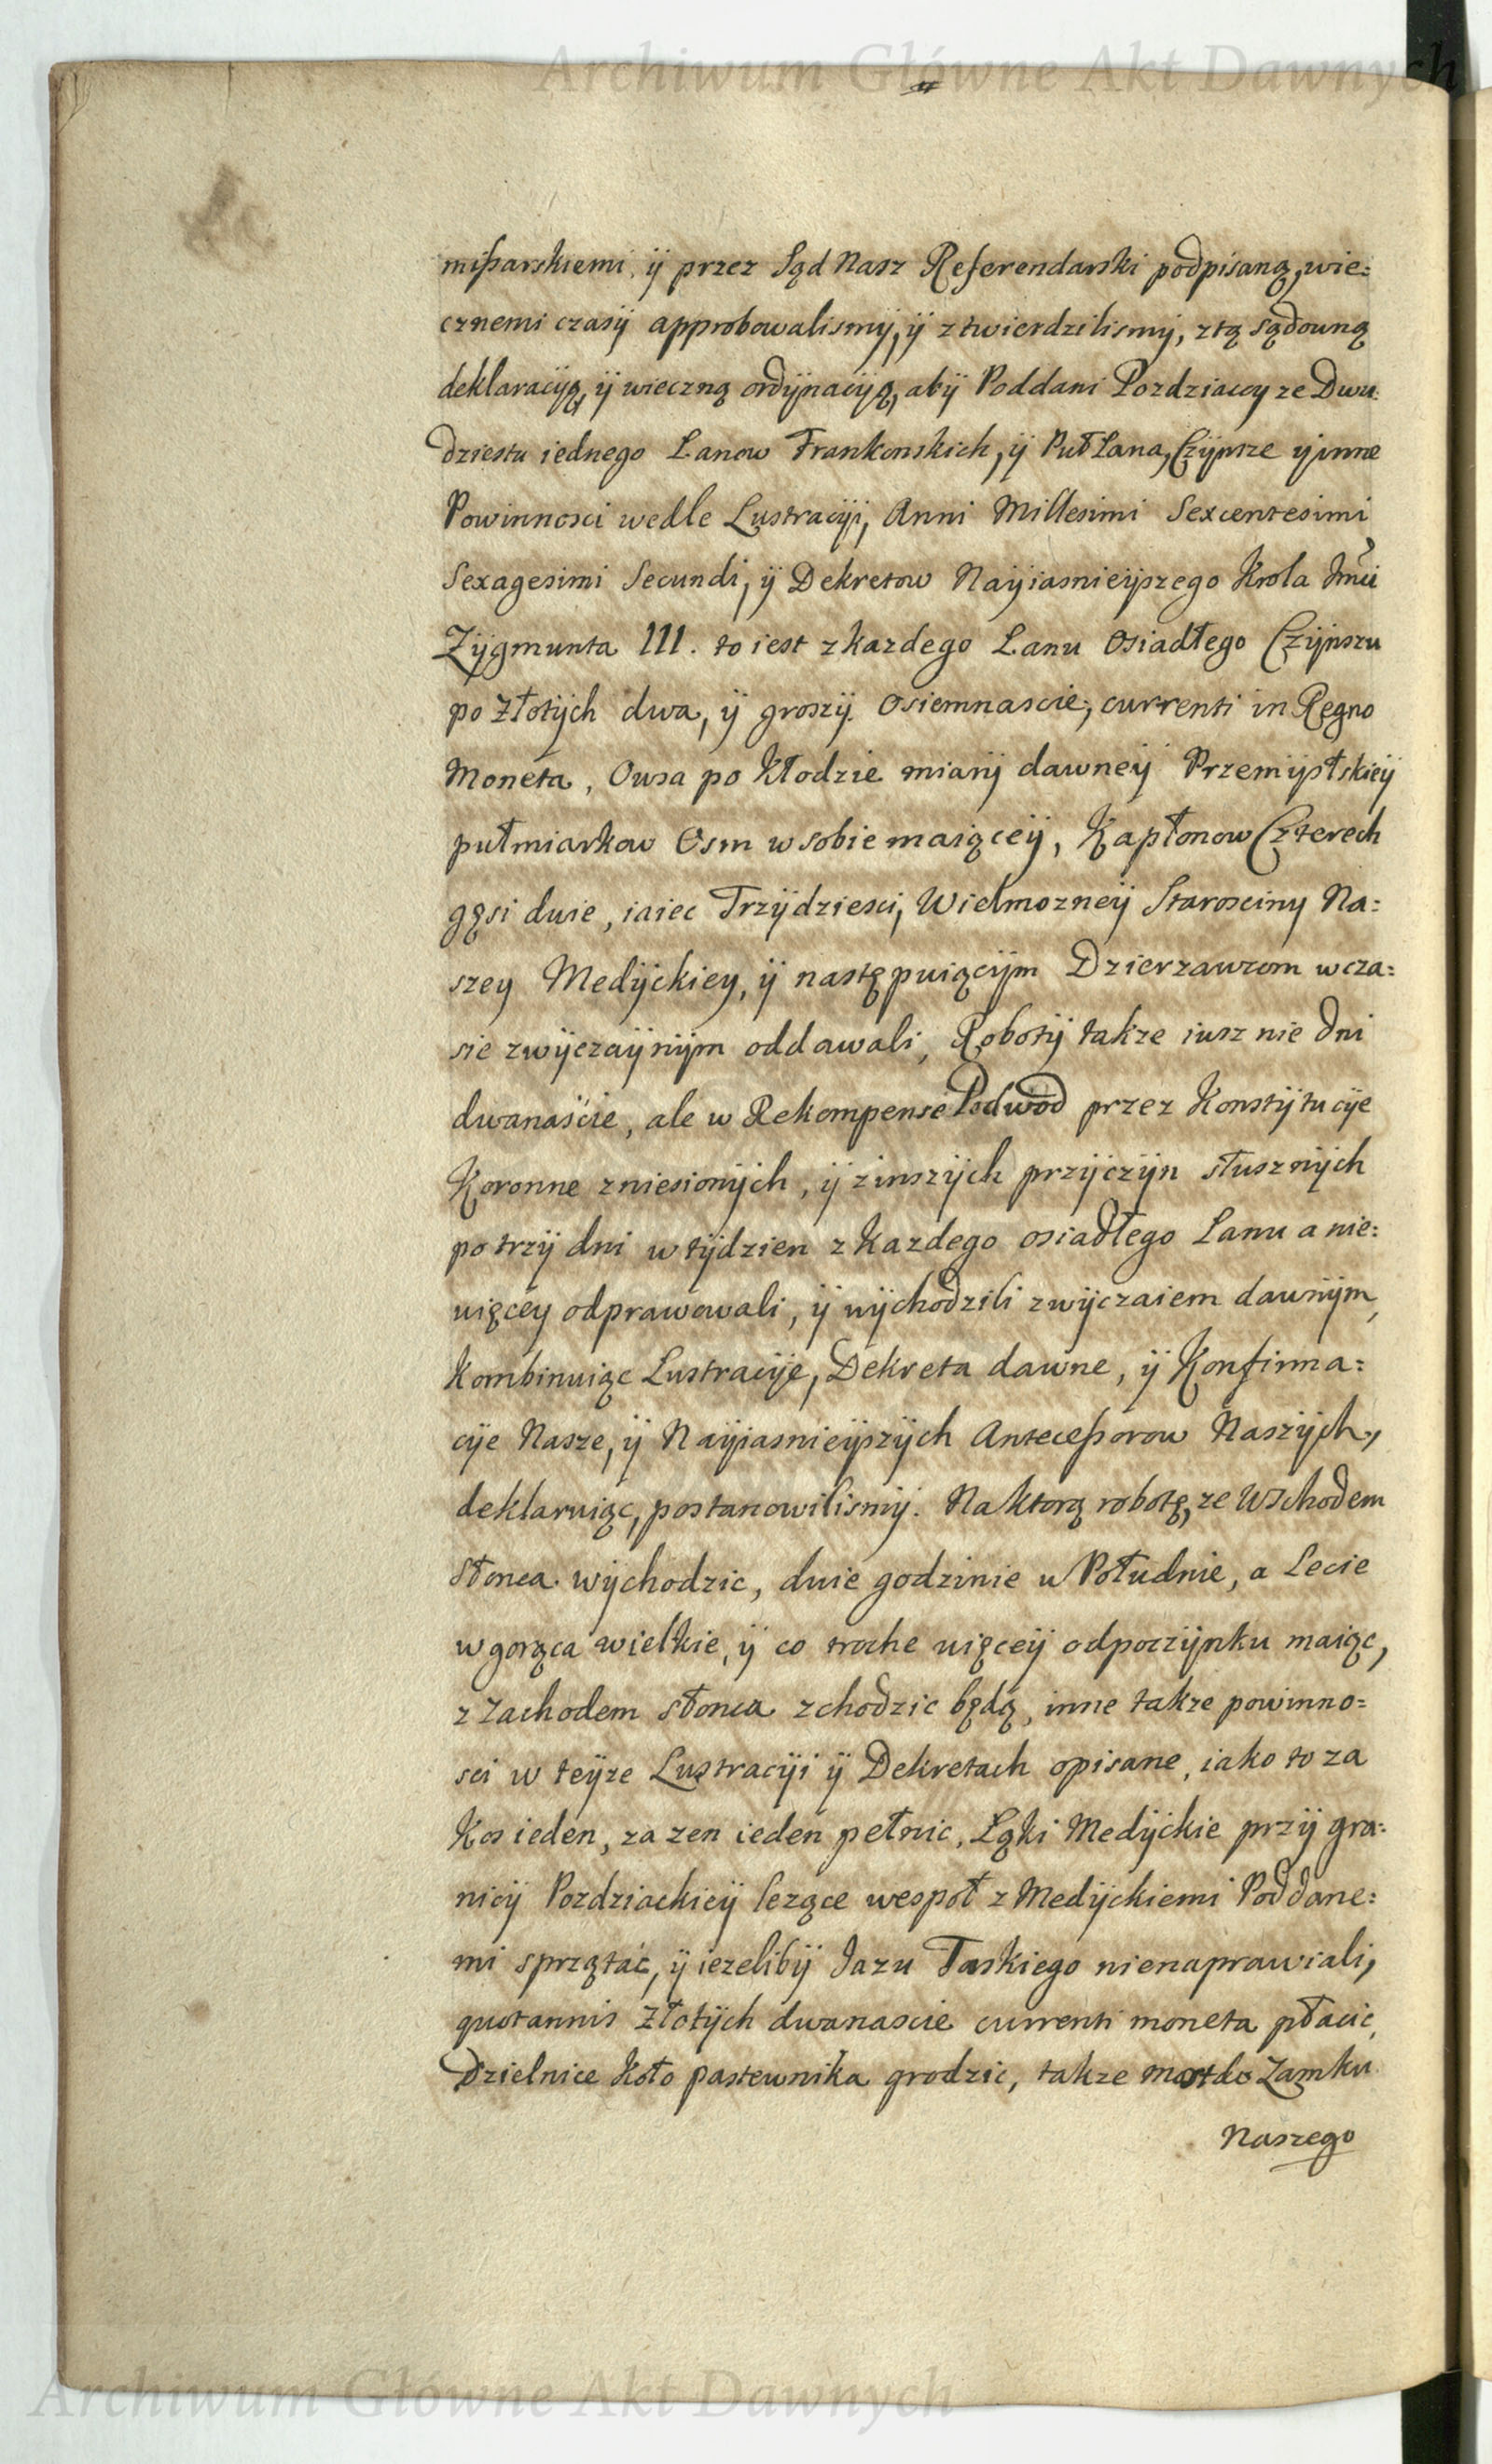 Archiwum Główne Akt Dawnych
mißarskiemi, ÿ przez Sąd Nasz Referendarski podpisaną, wie:
cznemi czasÿ approbowalismÿ, ÿ ztwierdzilismÿ, ztą sądowną
deklaracÿą, ÿ wieczną ordÿnacÿą, abÿ Poddani Pozdziaccy ze Dwu:
dziestu iednego Lanow Frankonskich, ÿ Puł Lana, Czÿnsze yinne
Powinnosci wedle Lustracÿi, Anni Millesimi Sexcentesimi
Sexagesimi Secundi, ÿ Dekretow Naÿiasnieÿszego Krola Jmci
Zÿgmunta III. to iest zkazdego Lanu Osiadłego Czÿnszu
po Złotÿch dwa, ÿ groszÿ Osiemnascie, currenti in Regno
Moneta, Owsa po Kłodzie miarÿ dawneÿ Przemÿslskieÿ
pułmiarkow Osm wsobie maiąceÿ, Kapłonow Czterech
gęsi dwie, iaiec Trzÿdziesci, Wielmozneÿ Starosciny Na:
szey Medÿckiey, ÿ następuiącÿm Dzierzawcom wcza:
sie zwÿczaÿnÿm oddawali, Robotÿ takze iusz nie dni
dwanaście, ale w Rekompense Podwod przez Konstÿtucÿe
Koronne zniesionÿch, ÿ zinszÿch przÿczÿn słusznÿch
po trzÿ dni w tÿdzien zkazdego osiadłego Lanu a nie:
więcey odprawowali, ÿ wÿchodzili zwÿczaiem dawnÿm,
Kombinuiąc Lustracÿe, Dekreta dawne, ÿ Konfirma:
cÿe Nasze, ÿ Naÿiasnieÿszÿch Anteceßorow Naszÿch,
deklaruiąc, postanowilismÿ. Naktorą robotę, ze Wschodem
Słonca wÿchodzic, dwie godzinie w Południe, a Lecie
w gorąca wielkie, ÿ co troche więceÿ odpoczÿnku maiąc,
z Zachodem słonca zchodzic będą, inne takze powinno:
sci w teÿze Lustracÿi ÿ Dekretach opisane, iako to za
Kos ieden, za zen ieden pełnic, Łąki Medÿckie przÿ gra:
nicÿ Pozdziackieÿ lezące wespoł z Medÿckiemi Poddane:
mi sprzątac, ÿ iezelibÿ Jazu Taskiego nienaprawiali,
quotannis Złotÿch dwanascie currenti moneta płacic,
Dzielnice Koło pastewnika grodzic, takze most do Zamku
Naszego
Archiwum Główne Akt Dawnych